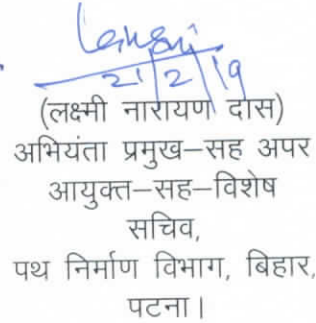 21/2/19
(लक्ष्मी नारायण दास)
अभियंता प्रमुख–सह अपर
आयुक्त–सह–विशेष
सचिव,
पथ निर्माण विभाग, बिहार,
पटना।